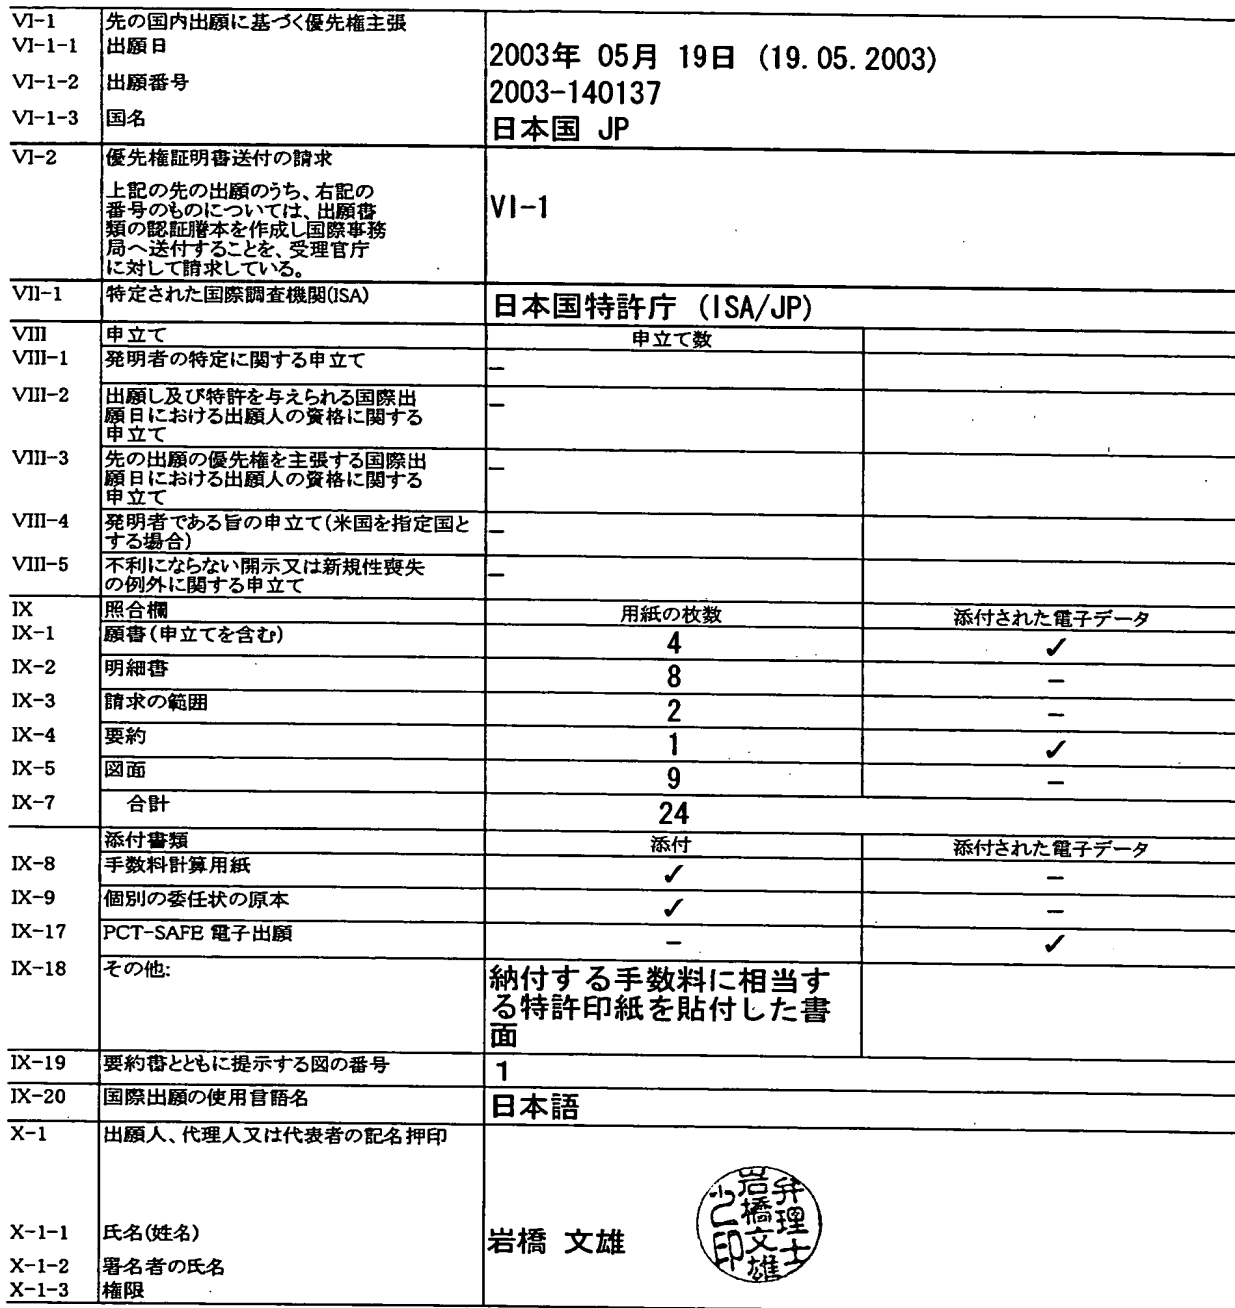 VI-1 先の国内出願に基づく優先権主張
VI-1-1 出願日 2003年 05月 19日 (19.05.2003)
VI-1-2 出願番号 2003-140137
VI-1-3 国名 日本国 JP
VI-2 優先権証明書送付の請求
上記の先の出願のうち、右記の
番号のものについては、出願書
類の認証謄本を作成し国際事務
局へ送付することを、受理官庁
に対して請求している。
VI-1
VII-1 特定された国際調査機関(ISA) 日本国特許庁 (ISA/JP)
VIII 申立て 申立て数
VIII-1 発明者の特定に関する申立て –
VIII-2 出願し及び特許を与えられる国際出
願日における出願人の資格に関する
申立て
–
VIII-3 先の出願の優先権を主張する国際出
願日における出願人の資格に関する
申立て
–
VIII-4 発明者である旨の申立て(米国を指定国と
する場合)
–
VIII-5 不利にならない開示又は新規性喪失
の例外に関する申立て
–
IX 照合欄 用紙の枚数 添付された電子データ
IX-1 願書(申立てを含む) 4 ✓
IX-2 明細書 8 –
IX-3 請求の範囲 2 –
IX-4 要約 1 ✓
IX-5 図面 9 –
IX-7 合計 24
添付書類 添付 添付された電子データ
IX-8 手数料計算用紙 ✓ –
IX-9 個別の委任状の原本 ✓ –
IX-17 PCT-SAFE 電子出願 – ✓
IX-18 その他: 納付する手数料に相当す
る特許印紙を貼付した書
面
IX-19 要約書とともに提示する図の番号 1
IX-20 国際出願の使用言語名 日本語
X-1 出願人、代理人又は代表者の記名押印
弁理士
岩橋文雄
之印
X-1-1 氏名(姓名) 岩橋 文雄
X-1-2 署名者の氏名
X-1-3 権限